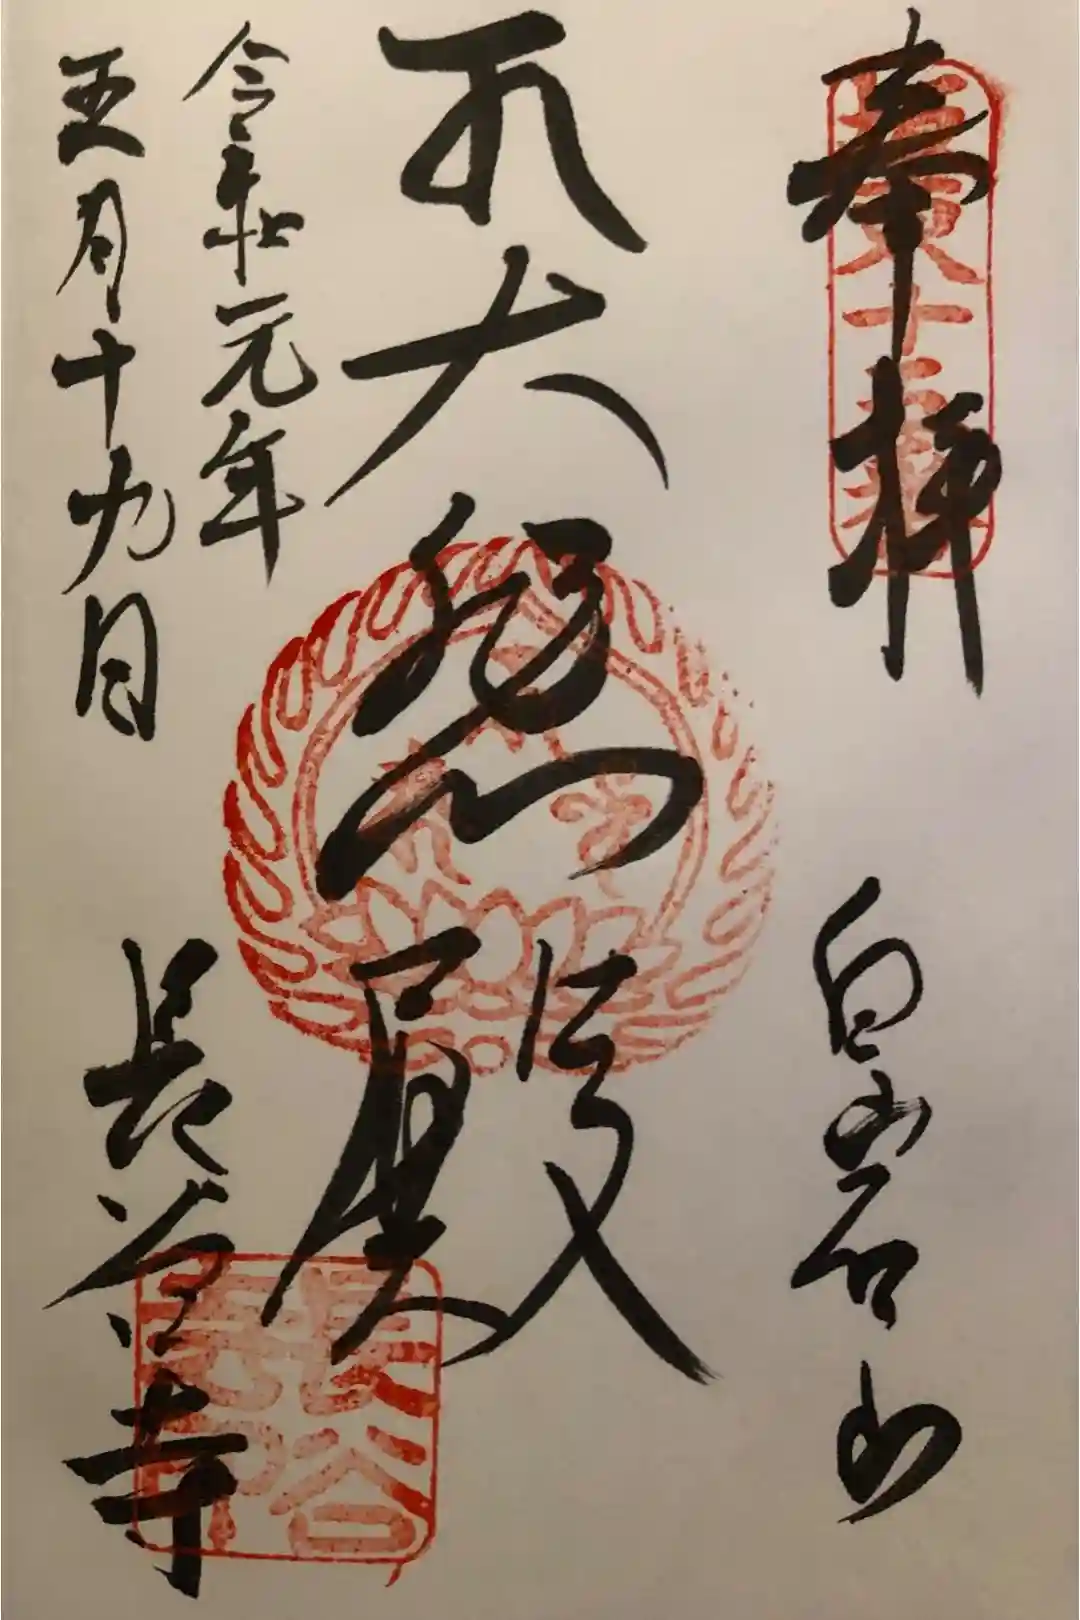 奉拝
坂東十五番
白岩山
大悲殿
令和元年
五月十九日
長谷寺
長谷寺印